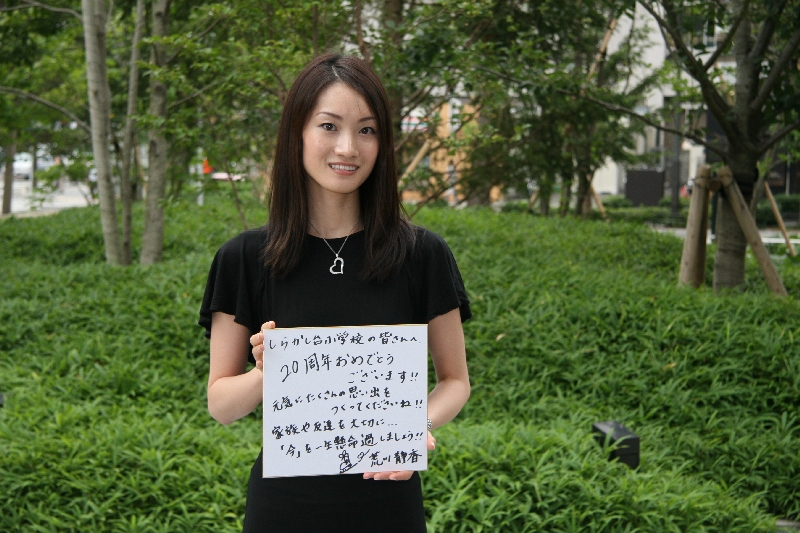 しらかし台小学校の皆さんへ
20周年おめでとう
ございます!!
元気にたくさんの思い出を
つくってくださいね!!
家族や友達を大切に...
「今」を一生懸命過しましょう!!
荒川静香